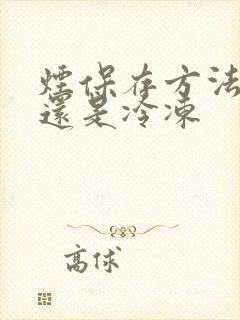 煙保存方法
還是冷凍
高俅